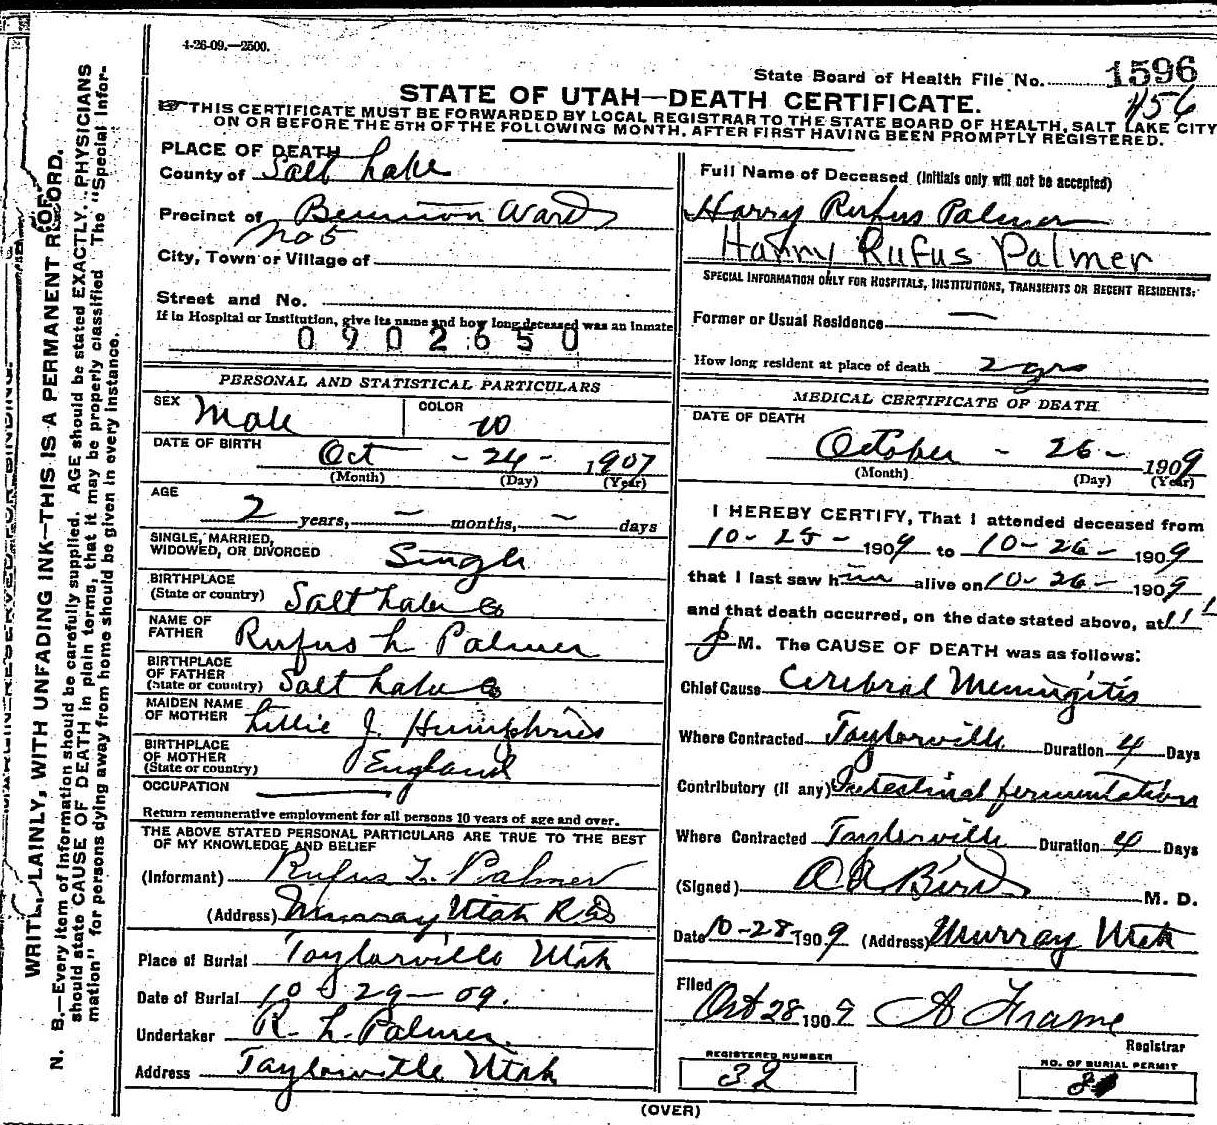 4-26-09.—2500.
State Board of Health File No. 1596
1156
STATE OF UTAH—DEATH CERTIFICATE.
THIS CERTIFICATE MUST BE FORWARDED BY LOCAL REGISTRAR TO THE STATE BOARD OF HEALTH, SALT LAKE CITY
ON OR BEFORE THE 5TH OF THE FOLLOWING MONTH, AFTER FIRST HAVING BEEN PROMPTLY REGISTERED.
PLACE OF DEATH
County of Salt Lake
Precinct of Bennion Ward
No 5
City, Town or Village of
Street and No.
If in Hospital or Institution, give its name and how long deceased was an inmate
0902650
PERSONAL AND STATISTICAL PARTICULARS
SEX Male COLOR W
DATE OF BIRTH Oct - 24 - 1907
(Month) (Day) (Year)
AGE
2 years, — months, — days
SINGLE, MARRIED,
WIDOWED, OR DIVORCED Single
BIRTHPLACE
(State or country) Salt Lake Co
NAME OF
FATHER Rufus L Palmer
BIRTHPLACE
OF FATHER
(State or country) Salt Lake Co
MAIDEN NAME
OF MOTHER Lillie J. Humphries
BIRTHPLACE
OF MOTHER
(State or country) England
OCCUPATION
Return remunerative employment for all persons 10 years of age and over.
THE ABOVE STATED PERSONAL PARTICULARS ARE TRUE TO THE BEST
OF MY KNOWLEDGE AND BELIEF
(Informant) Rufus L. Palmer
(Address) Murray Utah
Place of Burial Taylorsville Utah
Date of Burial 10 29 — 09.
Undertaker R. L. Palmer.
Address Taylorsville Utah
Full Name of Deceased (Initials only will not be accepted)
Harry Rufus Palmer
Harry Rufus Palmer
SPECIAL INFORMATION ONLY FOR HOSPITALS, INSTITUTIONS, TRANSIENTS OR RECENT RESIDENTS:
Former or Usual Residence —
How long resident at place of death 2 yrs
MEDICAL CERTIFICATE OF DEATH
DATE OF DEATH
October - 26 - 1909
(Month) (Day) (Year)
I HEREBY CERTIFY, That I attended deceased from
10-25- 1909 to 10-26- 1909
that I last saw him alive on 10-26- 1909
and that death occurred, on the date stated above, at 11
p M. The CAUSE OF DEATH was as follows:
Chief Cause Cerebral Meningitis
Where Contracted Taylorsville Duration 4 Days
Contributory (if any) Intestinal fermentation
Where Contracted Taylorsville Duration 4 Days
(Signed) Bird M. D.
Date 10-28- 1909 (Address) Murray Utah
Filed
Oct 28 1909 A Frame
Registrar
REGISTERED NUMBER
32
NO. OF BURIAL PERMIT
(OVER)
LAINLY, WITH UNFADING INK—THIS IS A PERMANENT RECORD.
N. B.—Every item of information should be carefully supplied. AGE should be stated EXACTLY. PHYSICIANS
should state CAUSE OF DEATH in plain terms, that it may be properly classified. The "Special Infor-
mation" for persons dying away from home should be given in every instance.